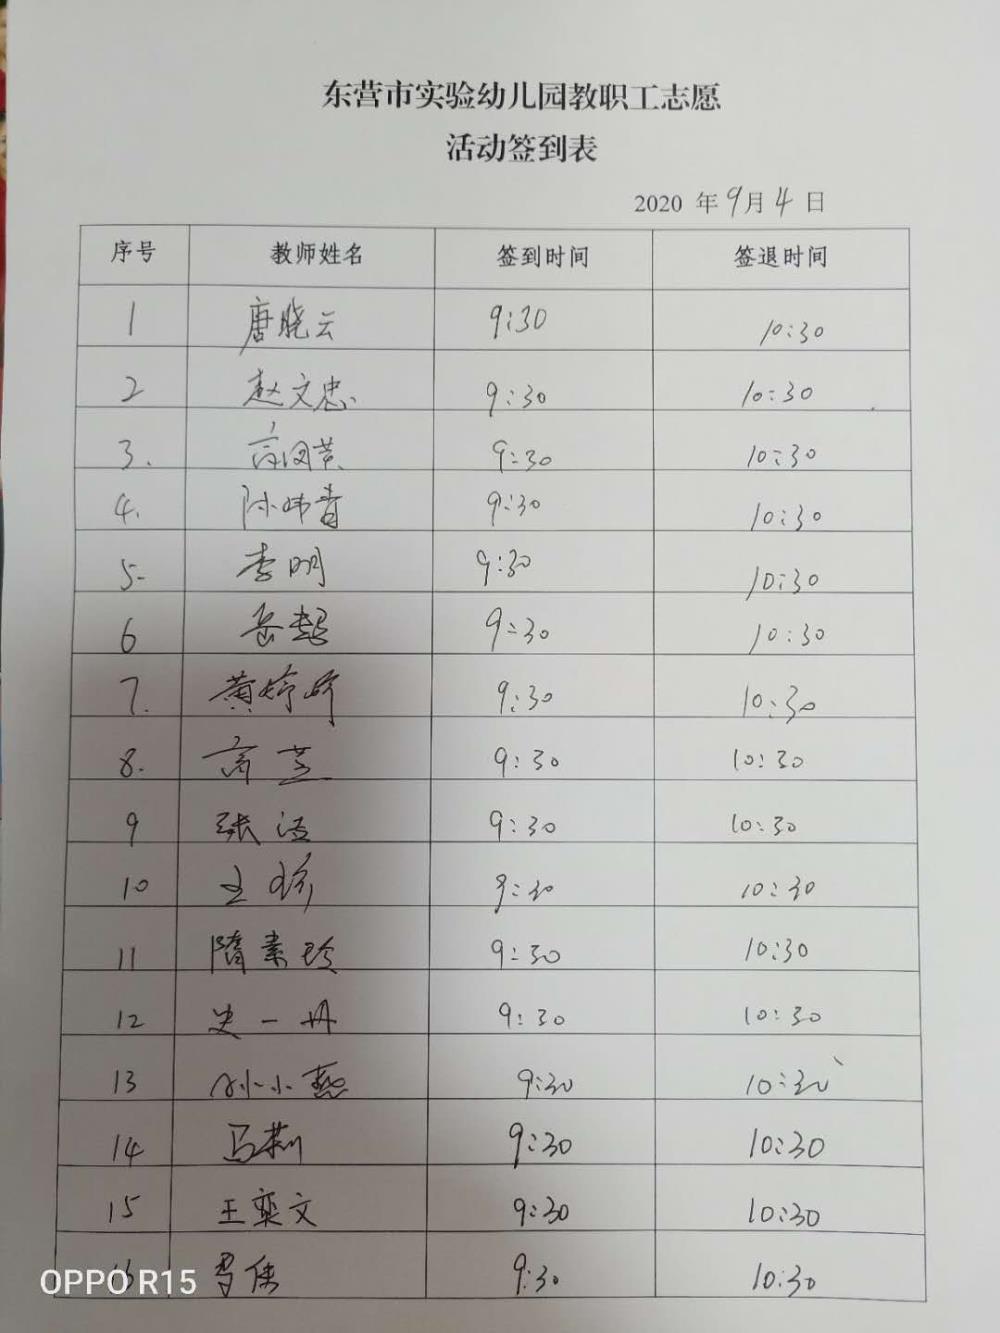 东营市实验幼儿园教职工志愿
活动签到表
2020 年 9月 4 日
序号 教师姓名 签到时间 签退时间
1 唐晓云 9:30 10:30
2 赵文忠 9:30 10:30
3. 9:30 10:30
4. 9:30 10:30
5- 李明 9:30 10:30
6 岳超 9:30 10:30
7. 黄婷婷 9:30 10:30
8. 9:30 10:30
9 张洁 9:30 10:30
10 9:30 10:30
11 隋素玲 9:30 10:30
12 史一丹 9:30 10:30
13 孙小燕 9:30 10:30
14 马莉 9:30 10:30
15 王奕文 9:30 10:30
16 9:30 10:30
OPPO R15